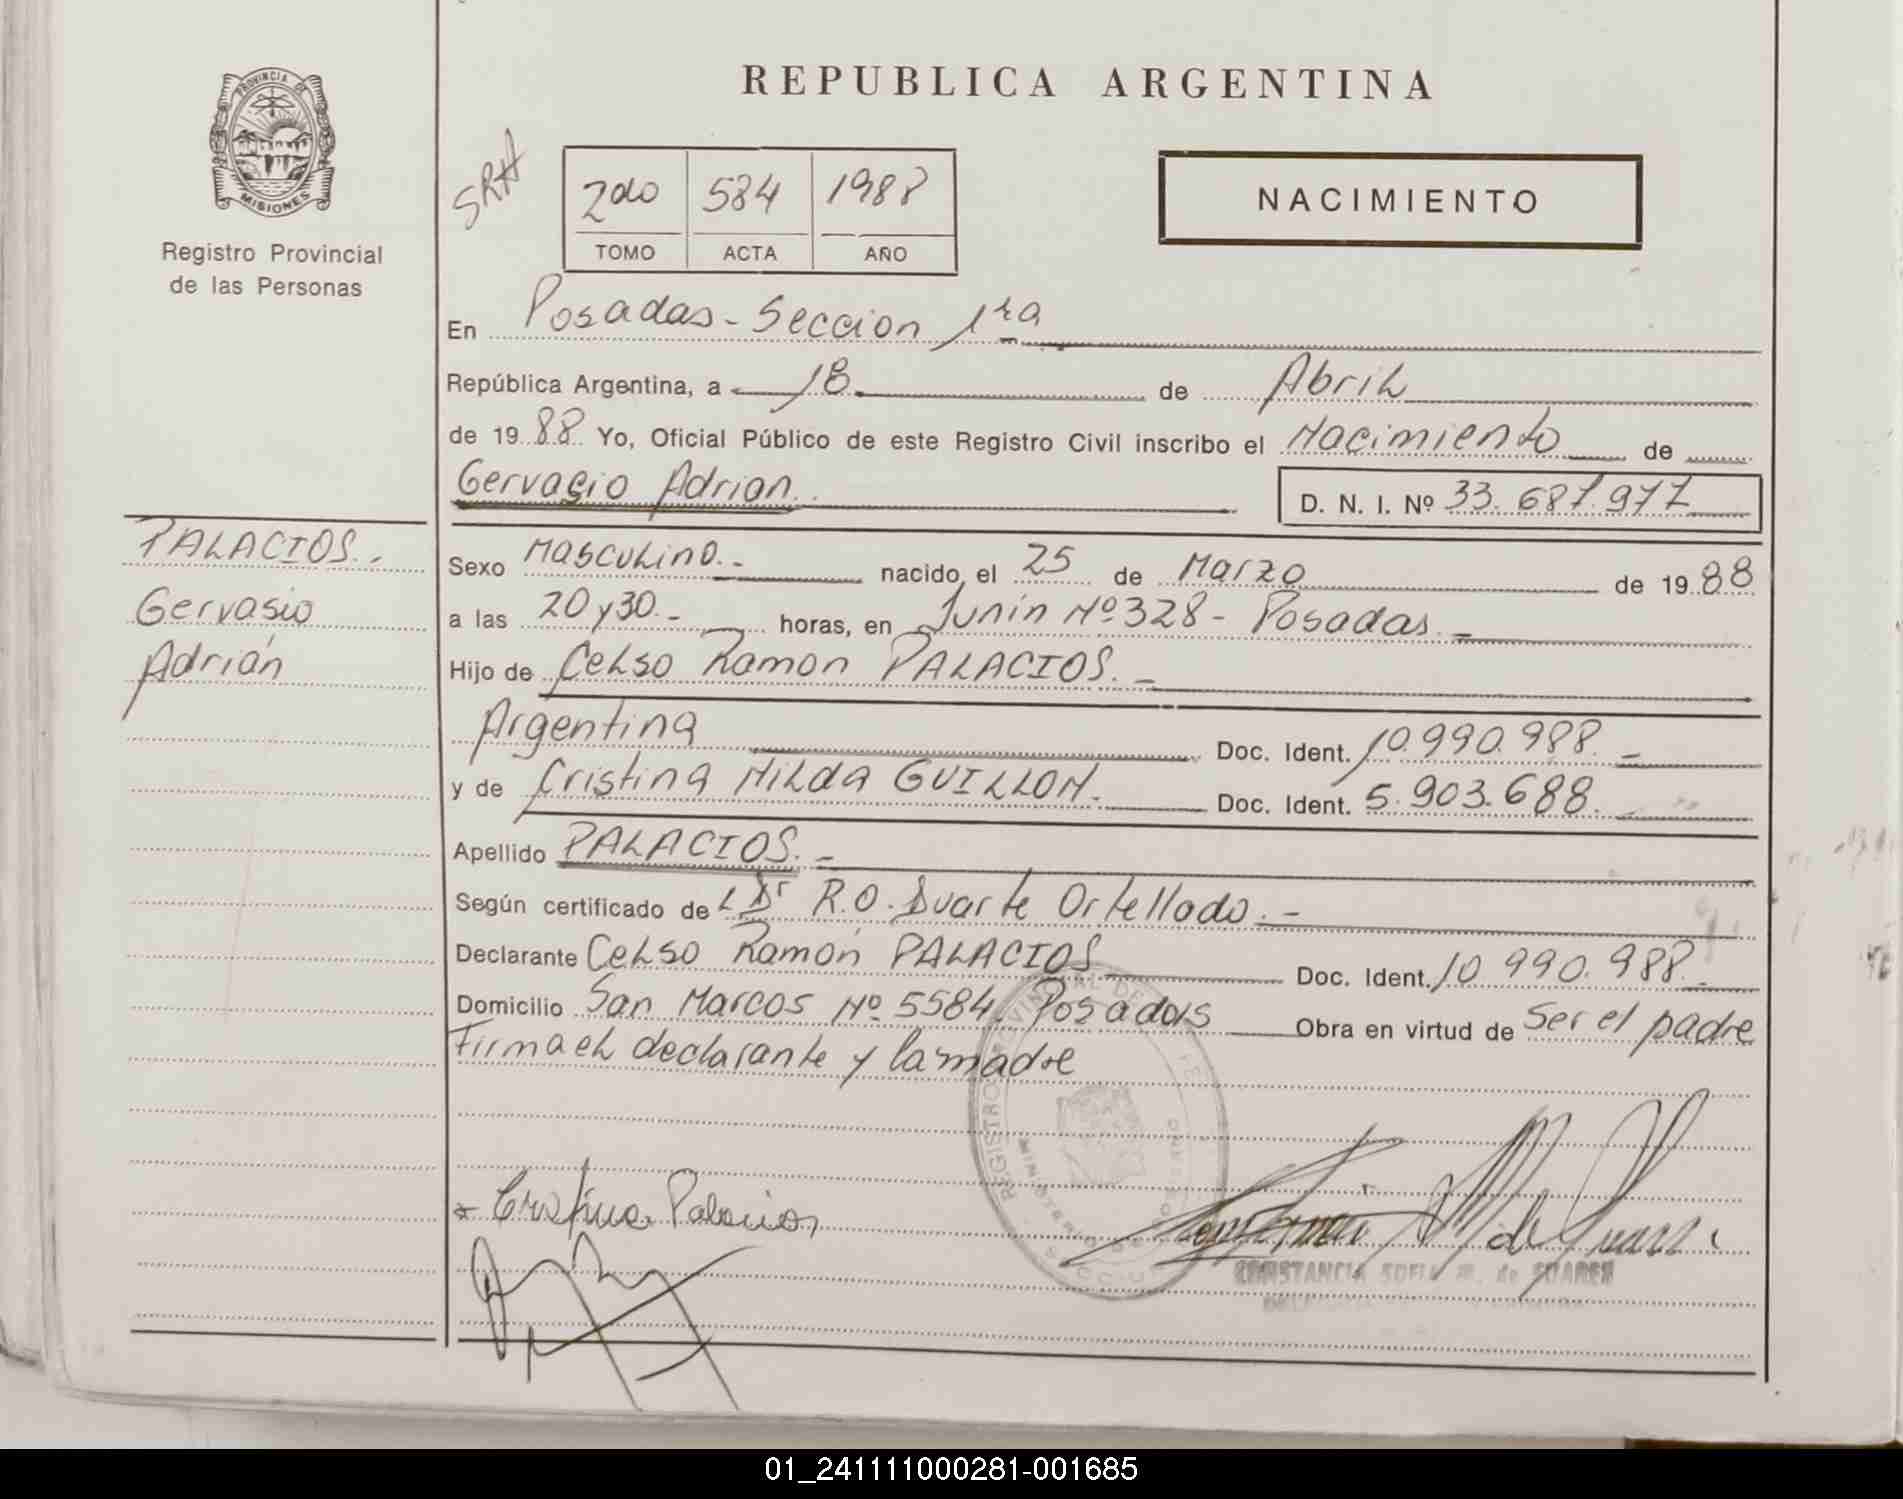 REPUBLICA ARGENTINA
PROVINCIA DE
MISIONES
Registro Provincial
de las Personas
SRH
2do 584 1988
TOMO ACTA AÑO
NACIMIENTO
En Posadas - Seccion 1ra
República Argentina, a 18 de Abril
de 1988 Yo, Oficial Público de este Registro Civil inscribo el Nacimiento de
Gervasio Adrian D. N. I. Nº 33.687.977
PALACIOS.
Gervasio
Adrián
Sexo Masculino.- nacido, el 25 de Marzo de 1988
a las 20 y 30.- horas, en Junín Nº 328 - Posadas.-
Hijo de Celso Ramon PALACIOS.-
Argentina Doc. Ident. 10.990.988.-
y de Cristina Nilda GUILLON. Doc. Ident. 5.903.688.
Apellido PALACIOS.-
Según certificado del Dr R.O. Duarte Ortellado.-
Declarante Celso Ramón PALACIOS Doc. Ident. 10.990.988.-
Domicilio San Marcos Nº 5584. Posadas Obra en virtud de Ser el padre
Firma el declarante y la madre
Cristina Palacios
CONSTANCIA SOFIA M. de SUARES
01_241111000281-001685